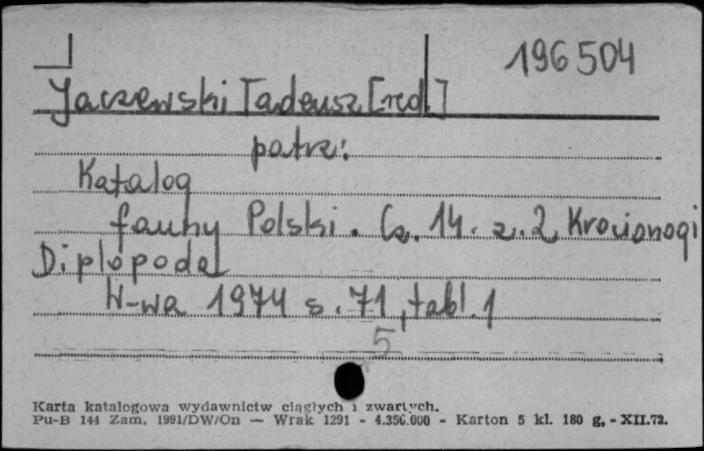 196504
Jaczewski Tadeusz [red.]
patrz:
Katalog
fauny Polski. Cz. 14. z. 2 Krocionogi
Diplopoda
W-wa 1974 s. 71, tabl. 1
5
Karta katalogowa wydawnictw ciągłych i zwartych.
Pu-B 144 Zam. 1991/DW/On — Wrak 1291 - 4.356.000 - Karton 5 kl. 180 g, - XII.72.